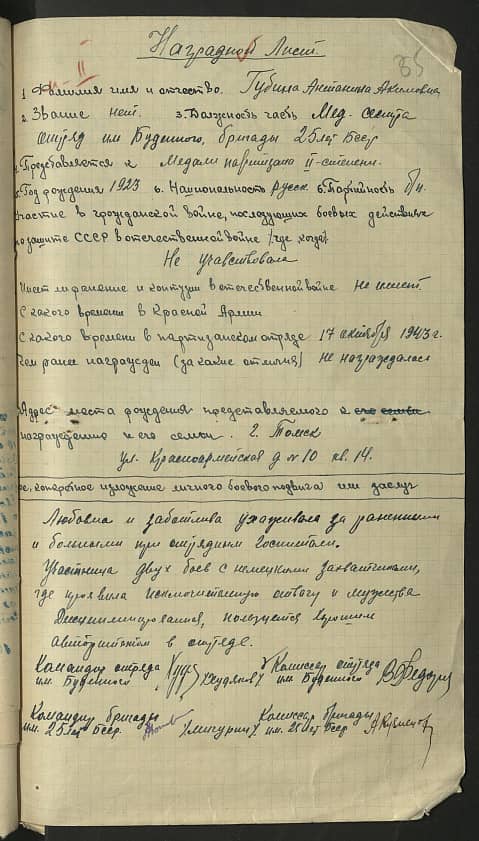 Наградной Лист.
35
II
1 Фамилия имя и отчество. Губина Антанина Акимовна
2. Звание нет. 3. Должность часть Мед. сестра
отряд им Буденного, бригады 25 лет Бсср
4. Представляется к Медали партизана II-степени.
5. Год рождения 1923 6. Национальность Русск 6. Партийность б/п.
Участие в гражданской войне, последующих боевых действиях
по защите СССР в отечественной войне /где, когда/.
Не учавствовала
Имеет ли ранение и контузии в отечественной войне не имеет.
С какого времени в Красной Армии
С какого времени в партизанском отряде 17 октября 1943 г.
Чем ранее награжден (за какие отличия) не награждалась
Адрес места рождения представляемого к его семьи
награждению и его семьи. г. Томск
ул. Красноармейская д № 10 кв. 14.
конкретное изложение личного боевого подвига или заслуг
Любовна и заботлива ухаживала за раненными
и больными при отрядном госпитале.
Участница двух боев с немецкими захватчиками,
где проявила исключительную отвагу и мужества
Дисциплинирована, пользуется хорошим
авторитетом в отряде.
Командир отряда Комиссар отряда
им. Буденного /Худяков/ им. Буденного
Командир бригады Комиссар бригады
им. 25 лет Бсср. им. 25 лет Бсср